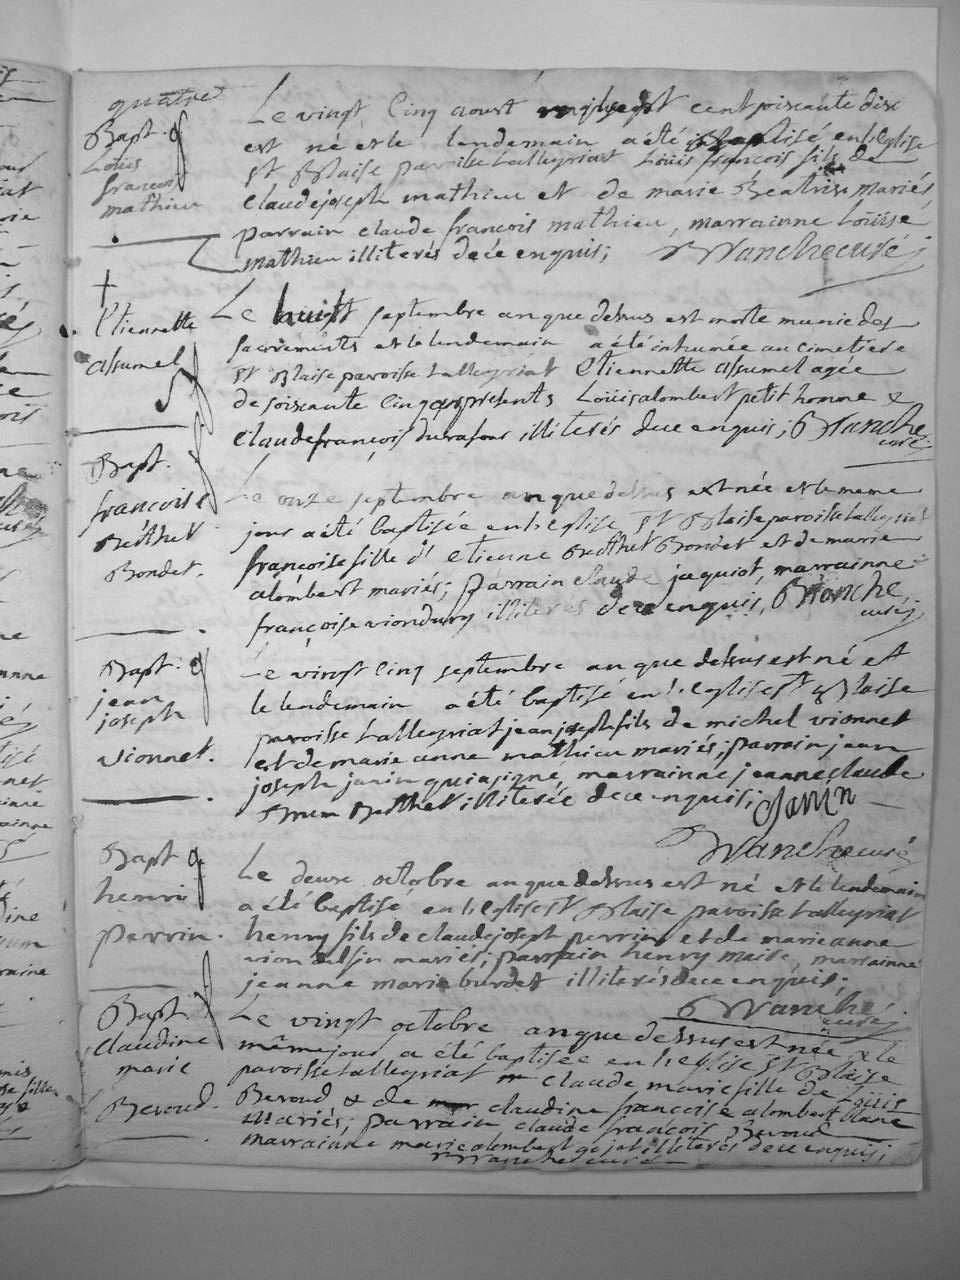 quatre
Bapt.
Louis
françois
mathieu
Le vingt Cinq aoust cent soixante dix
est né et le lendemain a été baptisé en l'eglise
St Blaise paroisse talleyriat Louis françois fils de
Claude joseph mathieu et de marie Beatrix, mariés
parrain claude françois mathieu, marrainne Louise
mathieu illiterés de ce enquis; Blanche curé
Etiennette
assumel
Le huit septembre an que dessus est morte munie des
sacrements et le lendemain a été inhumée au cimetiere
St Blaise paroisse talleyriat Etiennette assumel agée
de soixante Cinq ans presents Louis alombert petit honne &
Claude françois durafour illiterés de ce enquis; Blanche
curé
Bapt.
françoise
Berthet
Bondet.
Le onze septembre an que dessus est née et le meme
jour a été baptisée en l'eglise St Blaise paroisse talleyriat
françoise fille d'etienne Berthet Bondet et de marie
alombert mariés; parrain claude jaquiot, marrainne
françoise viondury illiterés de ce enquis, Blanche
curé
Bapt.
jean
joseph
vionnet.
Le vingt Cinq septembre an que dessus est né et
le lendemain a été baptisé en l'eglise St Blaise
paroisse talleyriat jean joseph fils de michel vionnet
et de marie anne mathieu mariés; parrain jean
joseph janin qui a signé, marrainne jeanne claude
Brun Berthet illiterée de ce enquis; Janin
Blanche curé
Bapt
henri
perrin.
Le deux octobre an que dessus est né et le lendemain
a été baptisé en l'eglise St Blaise paroisse talleyriat
henry fils de claude joseph perrin et de marie anne
mariés; parrain henry maire, marrainne
jeanne marie burdet illiterés de ce enquis;
Blanche
curé
Bapt.
Claudine
marie
Beroud.
Le vingt octobre an que dessus est née & le
même jour a été baptisée en l'eglise St Blaise
paroisse talleyriat claude marie fille de Louis
Beroud & de claudine françoise alombert blanc
mariés; parrain claude françois Beroud
marrainne marie alombert gojat illiterés de ce enquis;
Blanche curé